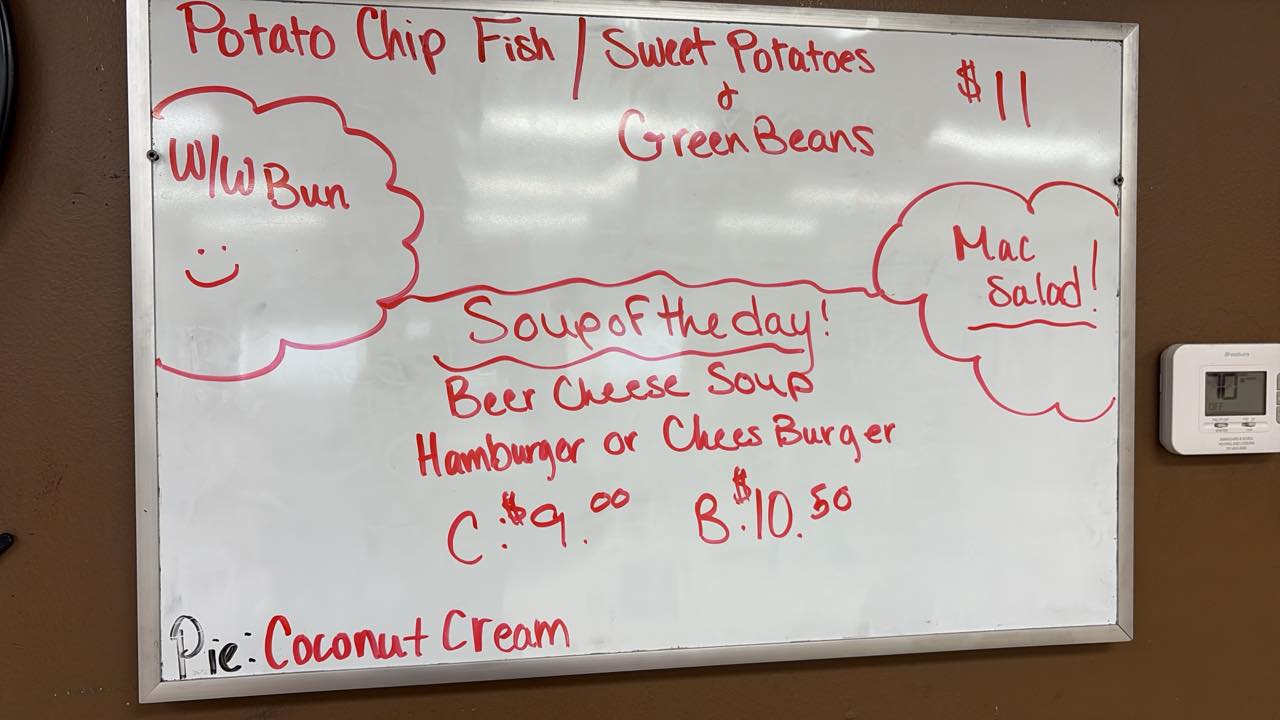 Potato Chip Fish / Sweet Potatoes
&
Green Beans
$11
W/W Bun
Mac
Salad!
Soup of the day!
Beer Cheese Soup
Hamburger or Chees Burger
C: $9.00 B: $10.50
Pie: Coconut Cream
70
OFF